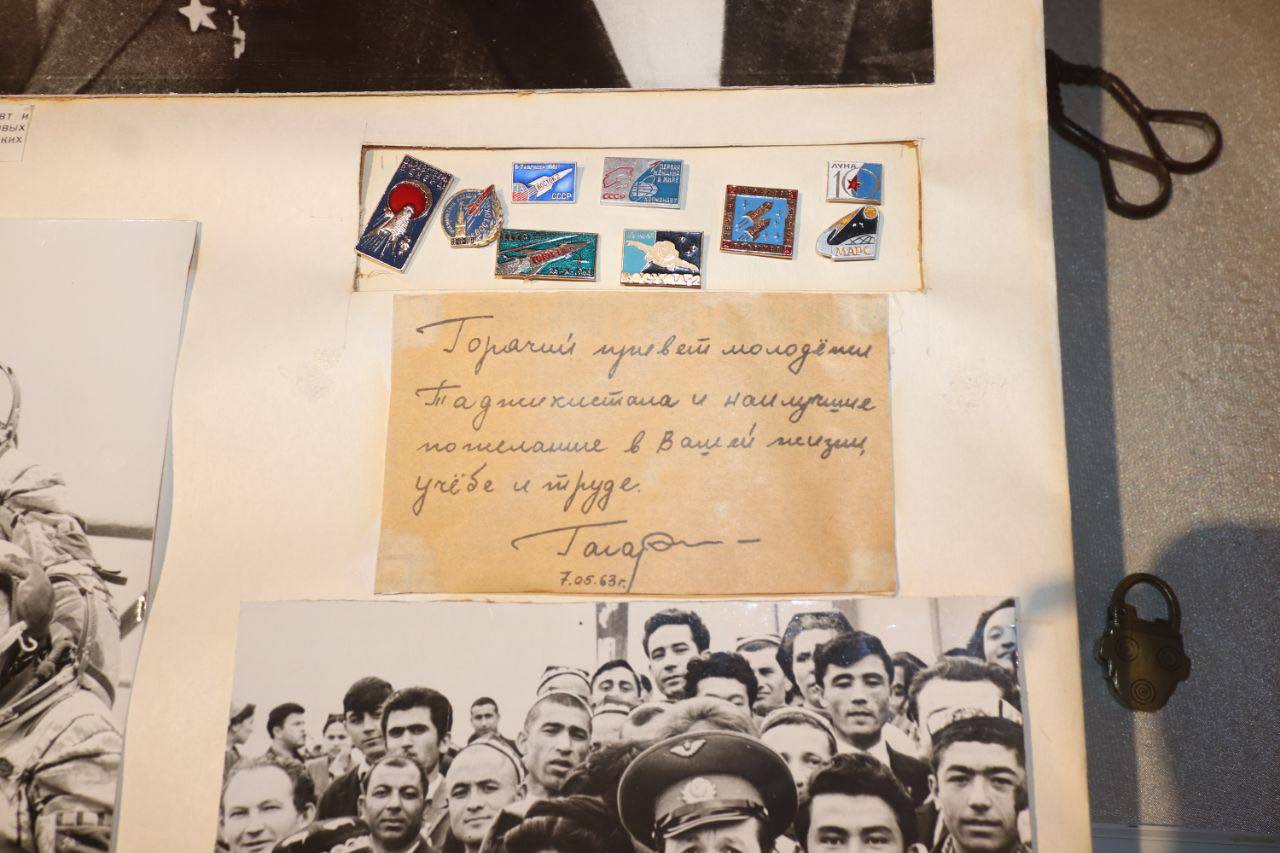 ВТ И
ВЫХ
КИХ
ВОСТОК
СССР
СССР
ПЕРВАЯ
В МИРЕ
ЛУНА
10
МАРС
Горячий привет молодёжи
Таджикистана и наилучшие
пожелание в Вашей жизни,
учёбе и труде.
Гагарин
7.05.63г.